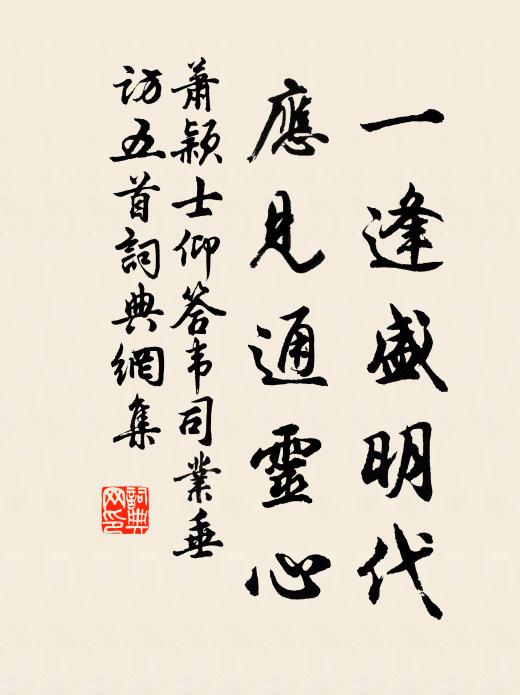 一逢盛明代
應見通靈心
蕭穎士仰答韦司業垂
訪五首詞典網集
詞典
网印